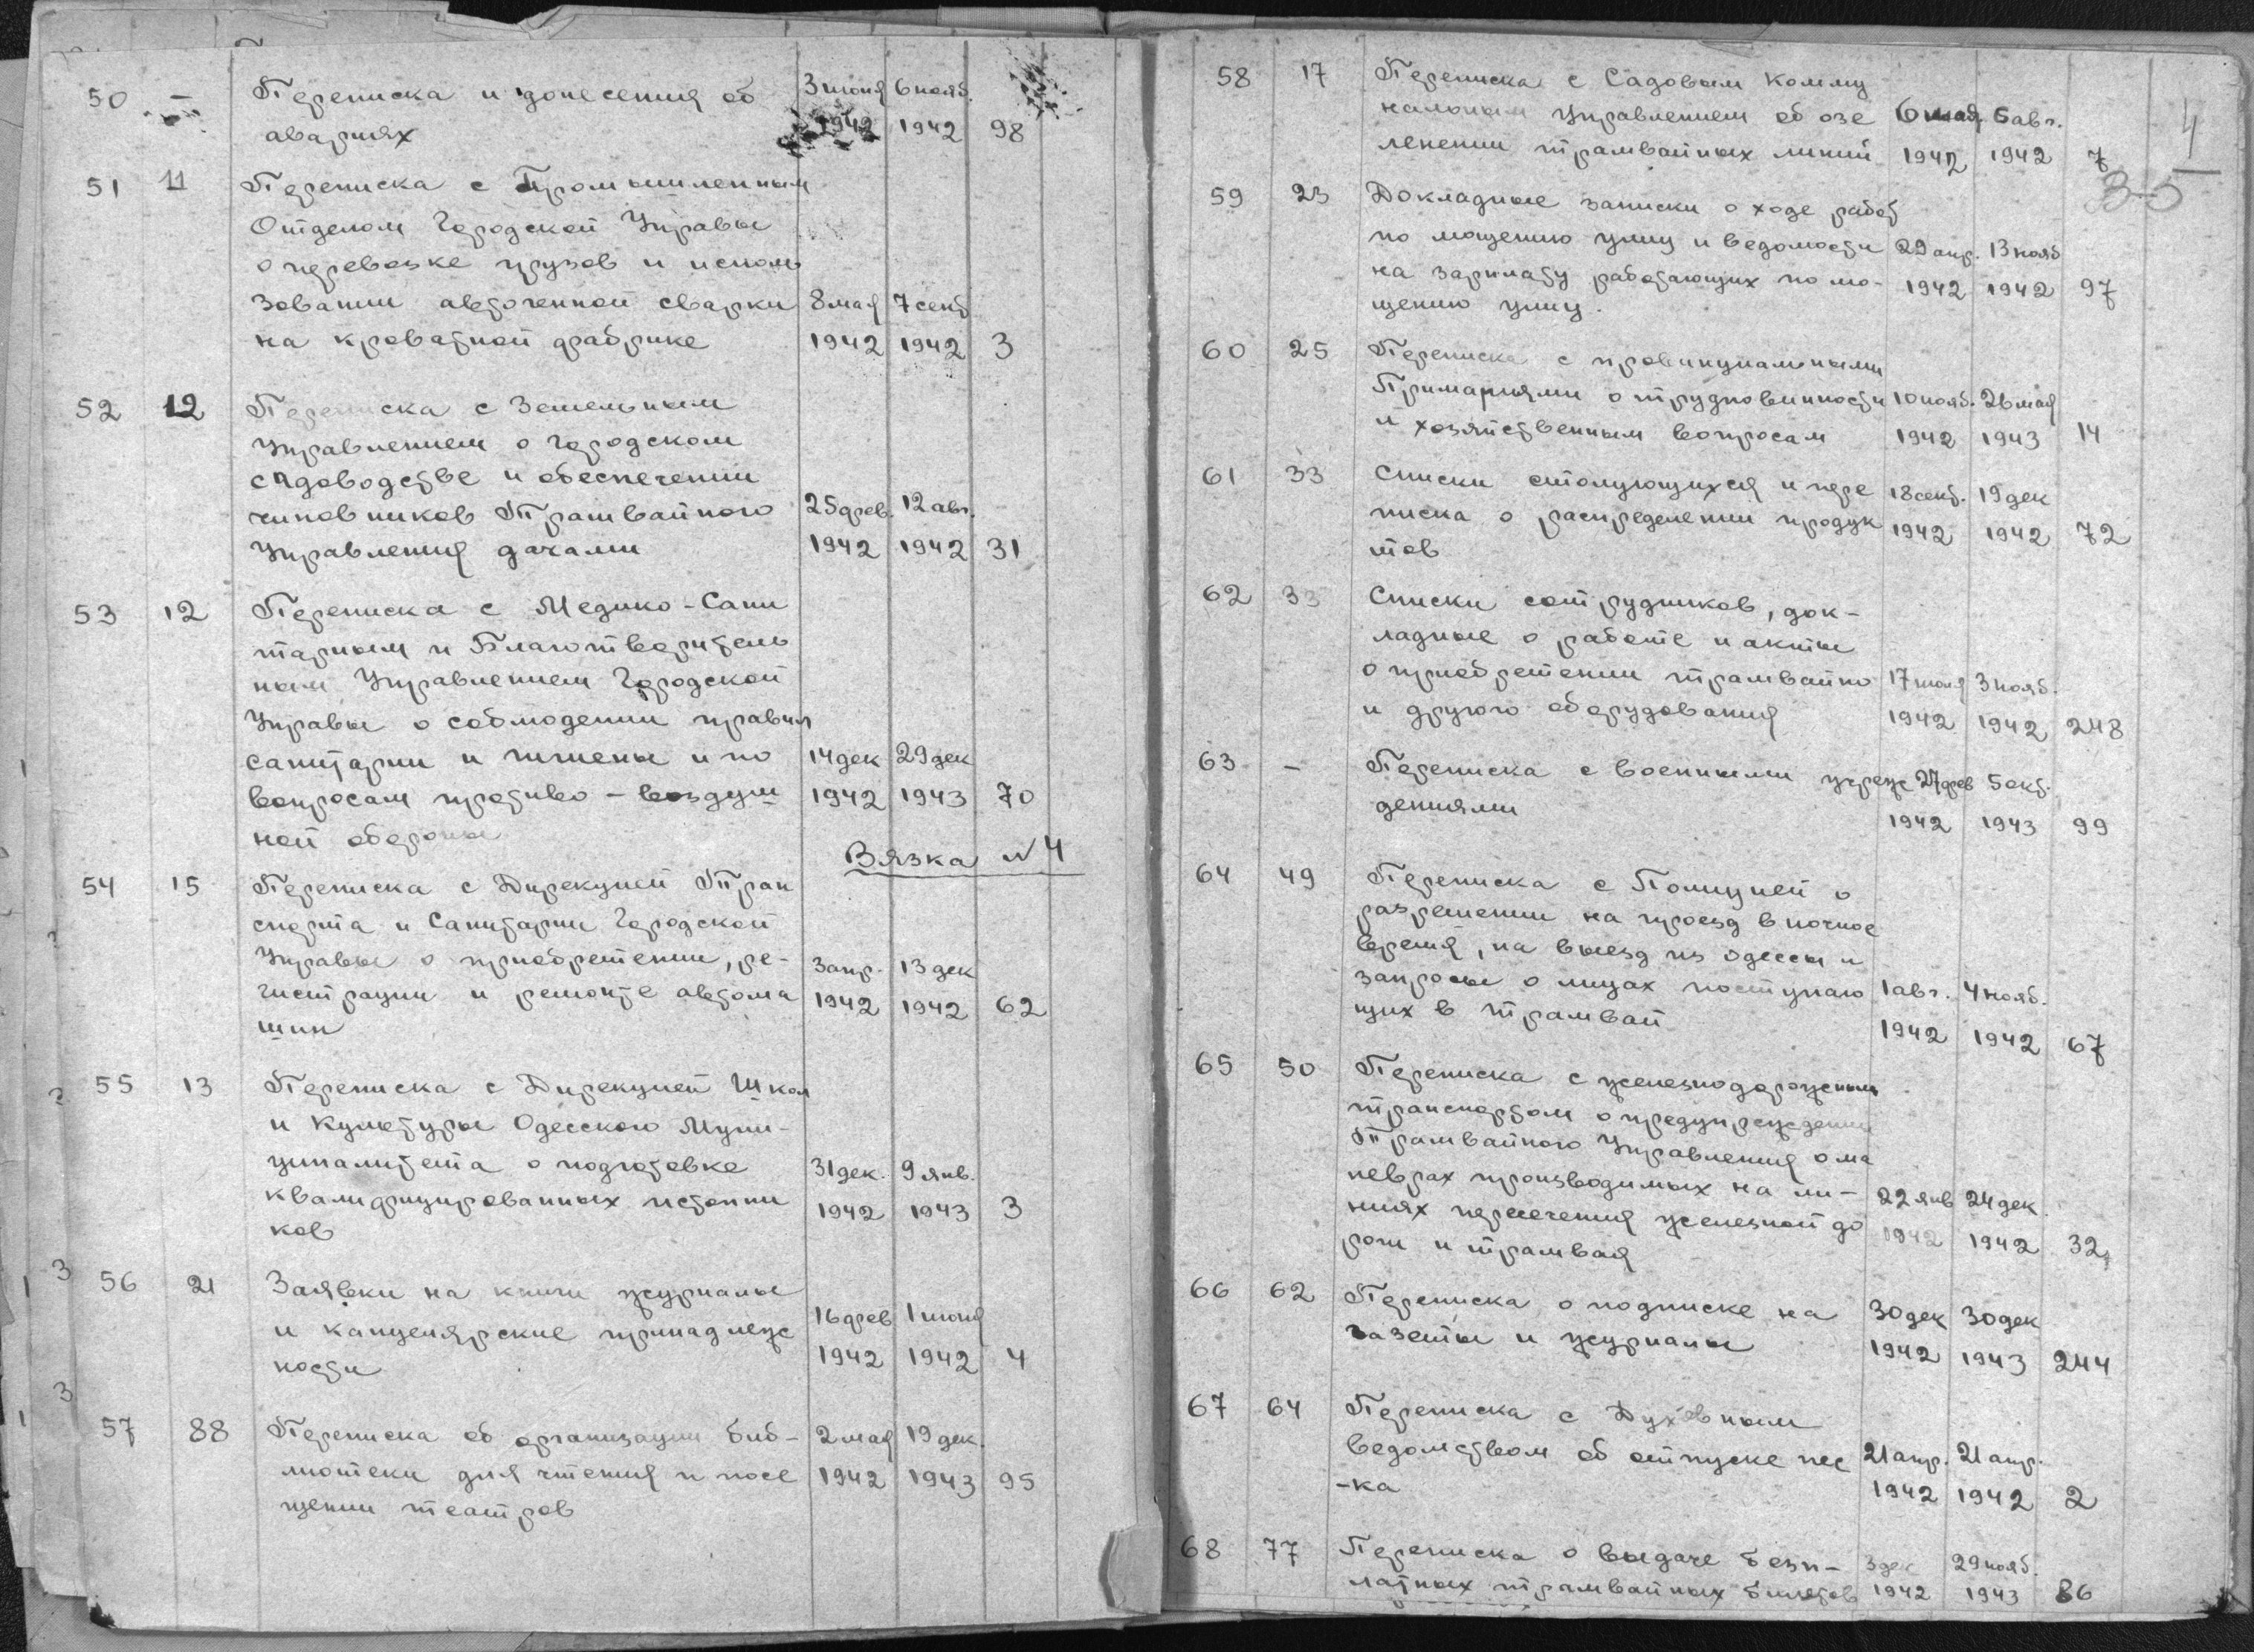 50 — Переписка и донесения об 3 июня 6 нояб.
авариях 1942 1942 98
51 11 Переписка с Промышленным
Отделом Городской Управы
о перевозке грузов и исполь
зовании автогенной сварки 8 мая 7 сент
на кроватной фабрике 1942 1942 3
52 12 Переписка с Земельным
Управлением о городском
садоводстве и обеспечении
чиновников Трамвайного 25 фев. 12 авг.
Управления дачами 1942 1942 31
53 12 Переписка с Медико-Сани
тарным и Благотворитель
ным Управлением Городской
Управы о соблюдении правил
санитарии и гигиены и по 14 дек 29 дек
вопросам противо-воздуш 1942 1943 70
ной обороны
Вязка №4
54 15 Переписка с Дирекцией Тран
спорта и Санитарии Городской
Управы о приобретении, ре- 3 апр. 13 дек
гистрации и ремонте автома 1942 1942 62
шин
55 13 Переписка с Дирекцией Школ
и Культуры Одесского Муни-
ципалитета о подготовке 31 дек. 9 янв.
квалифицированных истопни 1942 1943 3
ков
56 21 Заявки на книги журналы
и канцелярские принадлеж 16 фев 1 июня
ности 1942 1942 4
57 88 Переписка об организации биб- 2 мая 19 дек.
лиотеки для чтения и посе 1942 1943 95
щении театров
4
3-5
58 17 Переписка с Садовым Комму
нальным Управлением об озе 6 мая 5 авг.
ленении трамвайных линий 1942 1942 7
59 23 Докладные записки о ходе работ
по мощению улиц и ведомости 29 апр. 13 нояб
на зарплату работающих по мо- 1942 1942 97
щению улиц.
60 25 Переписка с провинциальными
Примариями о трудповинности 10 нояб. 26 мая
и хозяйственным вопросам 1942 1943 14
61 33 Списки столующихся и пере 18 сент. 19 дек
писка о распределении продук 1942 1942 72
тов
62 33 Списки сотрудников, док-
ладные о работе и акты
о приобретении трамвайно 17 июля 3 нояб.
и другого оборудования 1942 1942 248
63 — Переписка с военными учреж 27 фев 5 окт.
дениями 1942 1943 99
64 49 Переписка с Полицией о
разрешении на проезд в ночное
время, на выезд из Одессы и
запросы о лицах поступаю 1 авг. 4 нояб.
щих в трамвай 1942 1942 67
65 50 Переписка с железнодорожным
транспортом о предупреждении
Трамвайного Управления о ма
неврах производимых на ли- 22 янв 24 дек.
ниях пересечения железной до 1942 1942 32
роги и трамвая
66 62 Переписка о подписке на 30 дек 30 дек
газеты и журналы 1942 1943 244
67 64 Переписка с Духовным
ведомством об отпуске пес 21 апр. 21 апр.
-ка 1942 1942 2
68 77 Переписка о выдаче безп- 3 дек 29 нояб.
латных трамвайных билетов 1942 1943 86